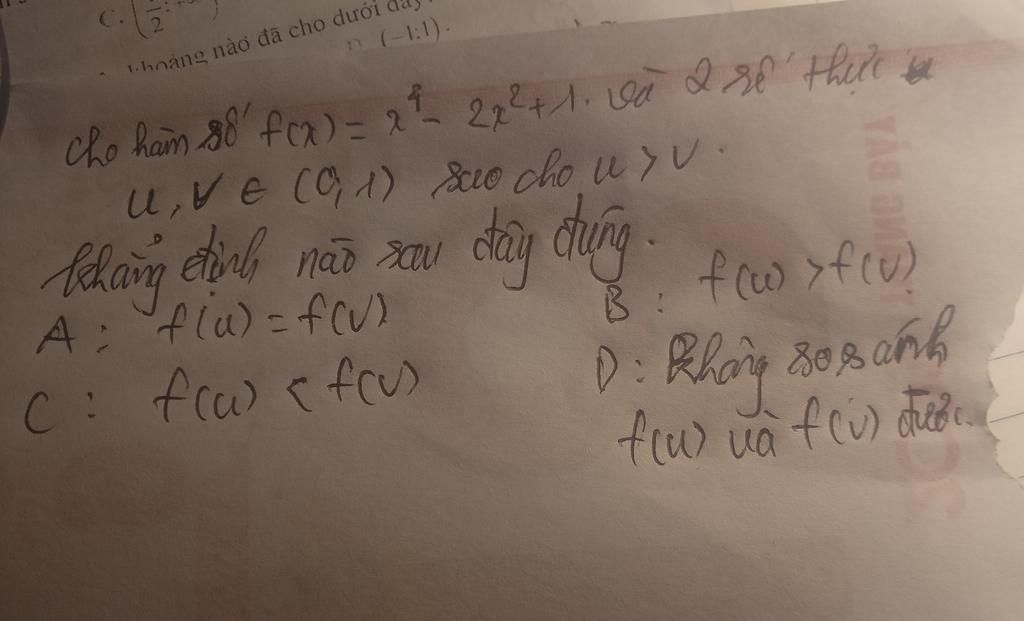 C.
khoảng nào đã cho dưới đây
(-1;1).
cho hàm số f(x) = x⁴ - 2x² + 1. và 2 số thực
u, v ∈ (0,1) sao cho u > v.
khẳng định nào sau đây đúng.
A : f(u) = f(v)
B : f(u) > f(v)
C : f(u) < f(v)
D : Không so sánh
f(u) và f(v) được.